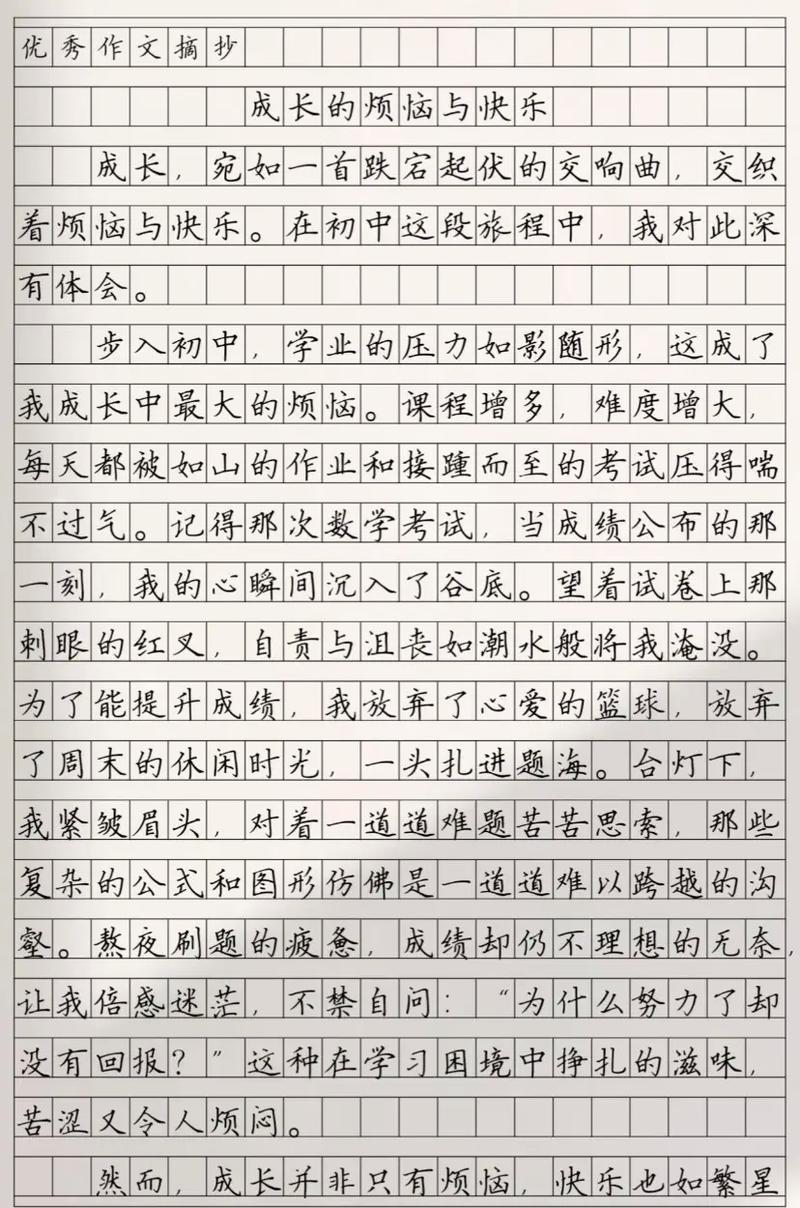 优秀作文摘抄
成长的烦恼与快乐
成长，宛如一首跌宕起伏的交响曲，交织
着烦恼与快乐。在初中这段旅程中，我对此深
有体会。
步入初中，学业的压力如影随形，这成了
我成长中最大的烦恼。课程增多，难度增大，
每天都被如山的作业和接踵而至的考试压得喘
不过气。记得那次数学考试，当成绩公布的那
一刻，我的心瞬间沉入了谷底。望着试卷上那
刺眼的红叉，自责与沮丧如潮水般将我淹没。
为了能提升成绩，我放弃了心爱的篮球，放弃
了周末的休闲时光，一头扎进题海。台灯下，
我紧皱眉头，对着一道道难题苦苦思索，那些
复杂的公式和图形仿佛是一道道难以跨越的沟
壑。熬夜刷题的疲惫，成绩却仍不理想的无奈，
让我倍感迷茫，不禁自问：“为什么努力了却
没有回报？”这种在学习困境中挣扎的滋味，
苦涩又令人烦闷。
然而，成长并非只有烦恼，快乐也如繁星